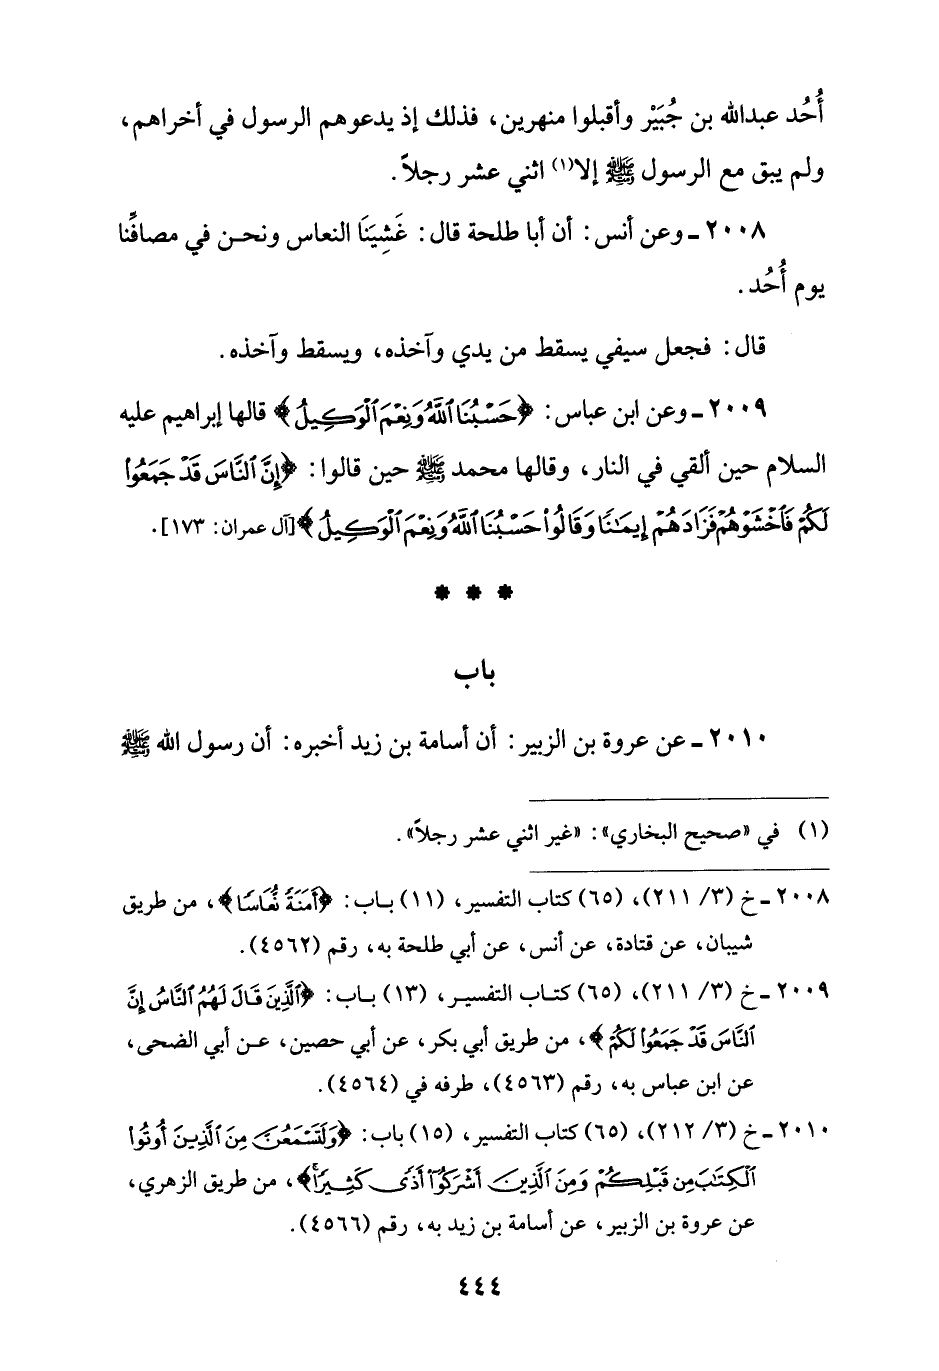 أُحُد عبدالله بن جُبَيْر وأقبلوا منهرين، فذلك إذ يدعوهم الرسول في أخراهم،
ولم يبق مع الرسول ﷺ إلا(١) اثني عشر رجلاً.
٢٠٠٨ ـ وعن أنس: أن أبا طلحة قال: غَشِيَنَا النعاس ونحن في مصافِّنا
يوم أُحُد.
قال: فجعل سيفي يسقط من يدي وآخذه، ويسقط وآخذه.
٢٠٠٩ ـ وعن ابن عباس: ﴿حَسْبُنَا ٱللَّهُ وَنِعْمَ ٱلْوَكِيلُ﴾ قالها إبراهيم عليه
السلام حين ألقي في النار، وقالها محمد ﷺ حين قالوا: ﴿إِنَّ ٱلنَّاسَ قَدْ جَمَعُوا۟
لَكُمْ فَٱخْشَوْهُمْ فَزَادَهُمْ إِيمَٰنًا وَقَالُوا۟ حَسْبُنَا ٱللَّهُ وَنِعْمَ ٱلْوَكِيلُ﴾ [آل عمران: ١٧٣].
* * *
باب
٢٠١٠ ـ عن عروة بن الزبير: أن أسامة بن زيد أخبره: أن رسول الله ﷺ
(١) في «صحيح البخاري»: «غير اثني عشر رجلاً».
٢٠٠٨ ـ خ (٣/ ٢١١)، (٦٥) كتاب التفسير، (١١) باب: ﴿أَمَنَةً نُّعَاسًا﴾، من طريق
شيبان، عن قتادة، عن أنس، عن أبي طلحة به، رقم (٤٥٦٢).
٢٠٠٩ ـ خ (٣/ ٢١١)، (٦٥) كتاب التفسير، (١٣) باب: ﴿ٱلَّذِينَ قَالَ لَهُمُ ٱلنَّاسُ إِنَّ
ٱلنَّاسَ قَدْ جَمَعُوا۟ لَكُمْ﴾، من طريق أبي بكر، عن أبي حصين، عن أبي الضحى،
عن ابن عباس به، رقم (٤٥٦٣)، طرفه في (٤٥٦٤).
٢٠١٠ ـ خ (٣/ ٢١٢)، (٦٥) كتاب التفسير، (١٥) باب: ﴿وَلَتَسْمَعُنَّ مِنَ ٱلَّذِينَ أُوتُوا۟
ٱلْكِتَٰبَ مِن قَبْلِكُمْ وَمِنَ ٱلَّذِينَ أَشْرَكُوٓا۟ أَذًى كَثِيرًا﴾، من طريق الزهري،
عن عروة بن الزبير، عن أسامة بن زيد به، رقم (٤٥٦٦).
٤٤٤